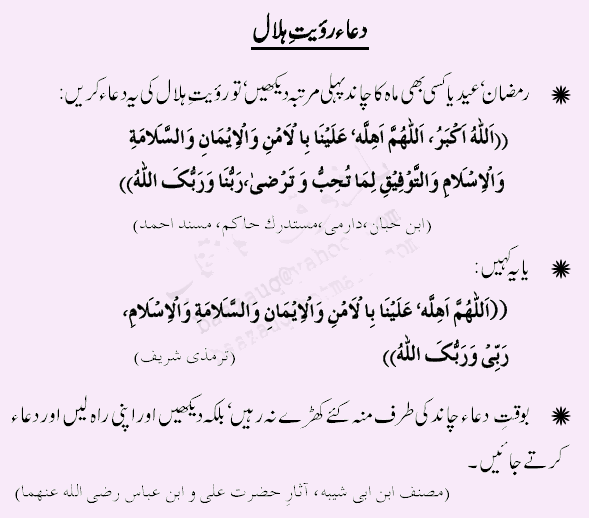 دعاء رؤیتِ ہلال
رمضان‘ عید یا کسی بھی ماہ کا چاند پہلی مرتبہ دیکھیں‘ تو رؤیتِ ہلال کی یہ دعاء کریں:
((اَللّٰهُ اَكْبَرُ، اَللّٰهُمَّ اَهِلَّه‘ عَلَيْنَا بِالْاَمْنِ وَالْاِيْمَانِ وَالسَّلَامَةِ
وَالْاِسْلَامِ وَالتَّوْفِيْقِ لِمَا تُحِبُّ وَ تَرْضىٰ،رَبُّنَا وَرَبُّکَ اللّٰهُ))
(ابن حبان،دارمی،مستدرك حاكم، مسند احمد)
یا یہ کہیں:
((اَللّٰهُمَّ اَهِلَّه‘ عَلَيْنَا بِالْاَمْنِ وَالْاِيْمَانِ وَالسَّلَامَةِ وَالْاِسْلَامِ،
رَبِّیْ وَرَبُّکَ اللّٰهُ)) (ترمذی شریف)
بوقتِ دعاء چاند کی طرف منہ کئے کھڑے نہ رہیں‘ بلکہ دیکھیں اور اپنی راہ لیں اور دعاء
کرتے جائیں۔
(مصنف ابن ابی شیبه، آثارِ حضرت علی و ابن عباس رضی الله عنهما)